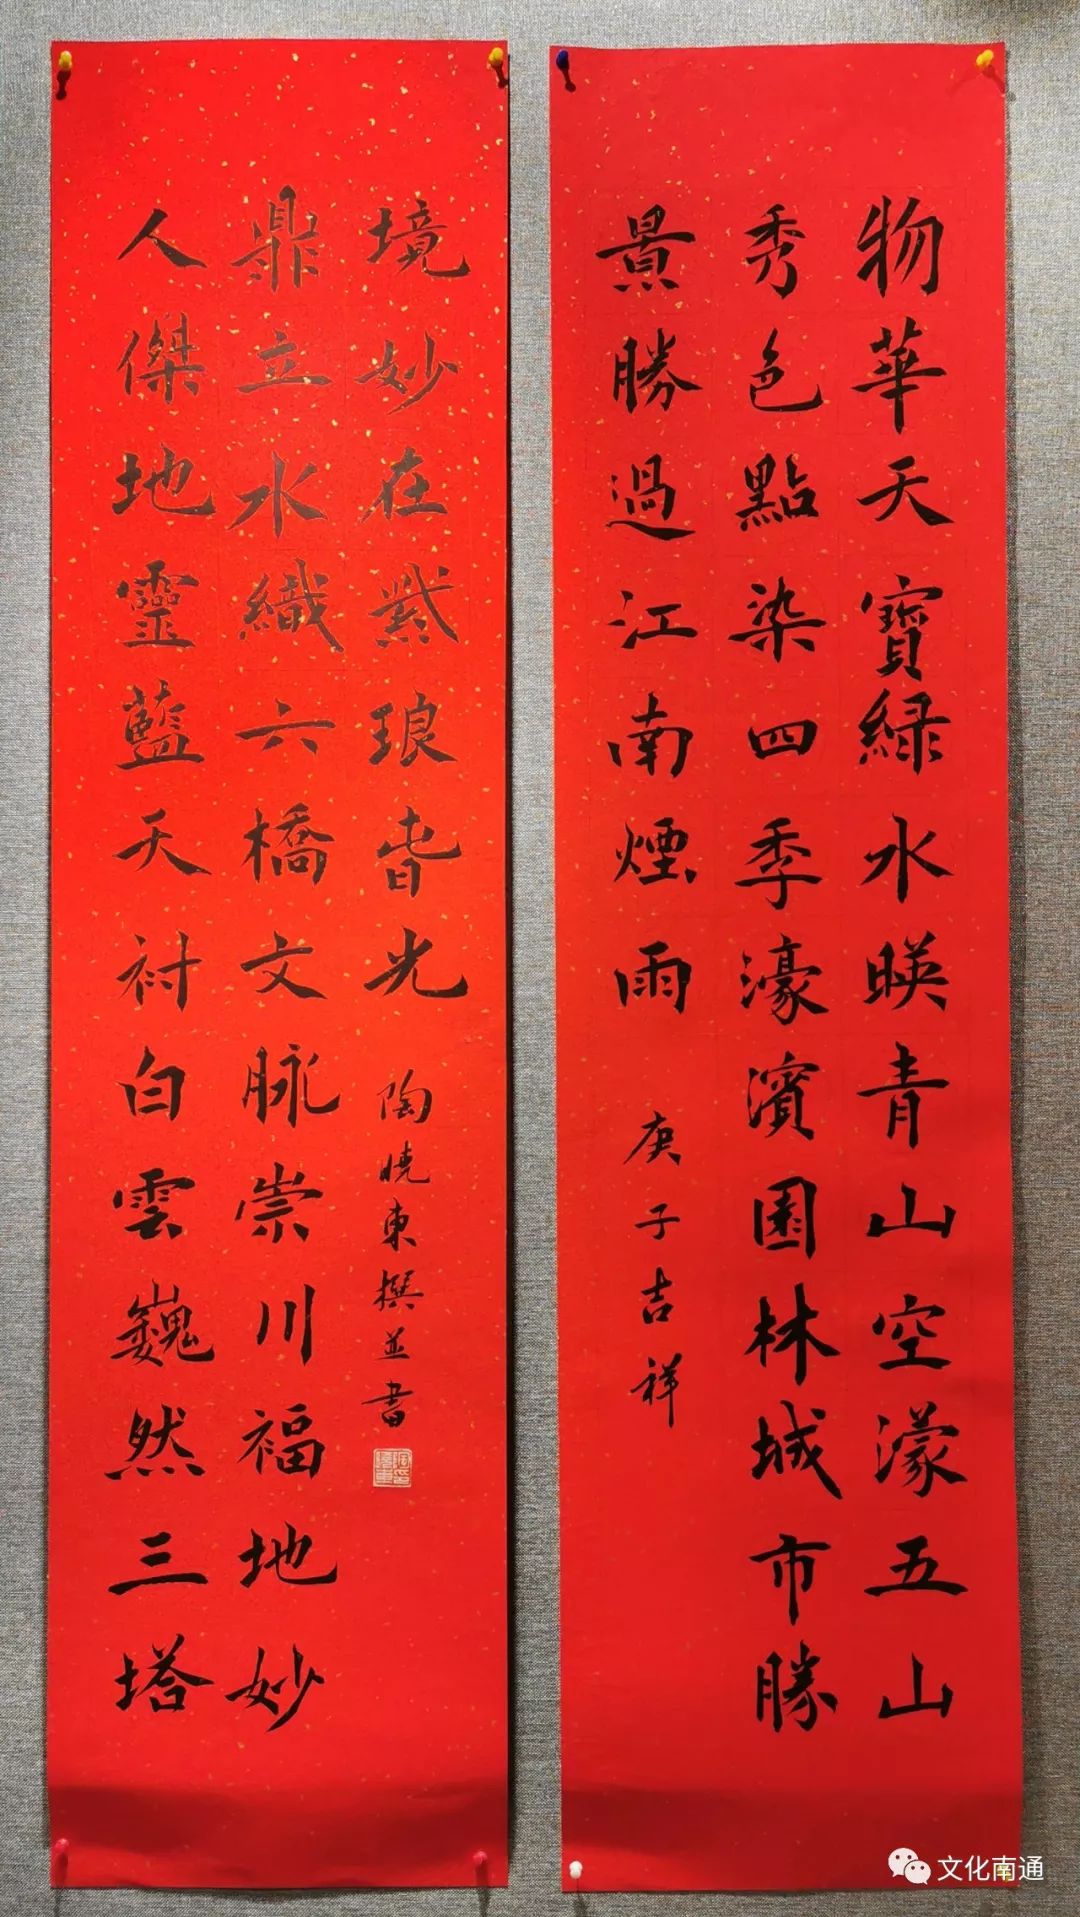 物華天寶綠水暎青山空濛五山
秀色點染四季濠濱園林城市勝
景勝過江南煙雨
庚子吉祥
人傑地靈藍天衬白雲巍然三塔
鼎立水織六橋文脉崇川福地妙
境妙在紫琅旹光
陶曉東撰並書
文化南通